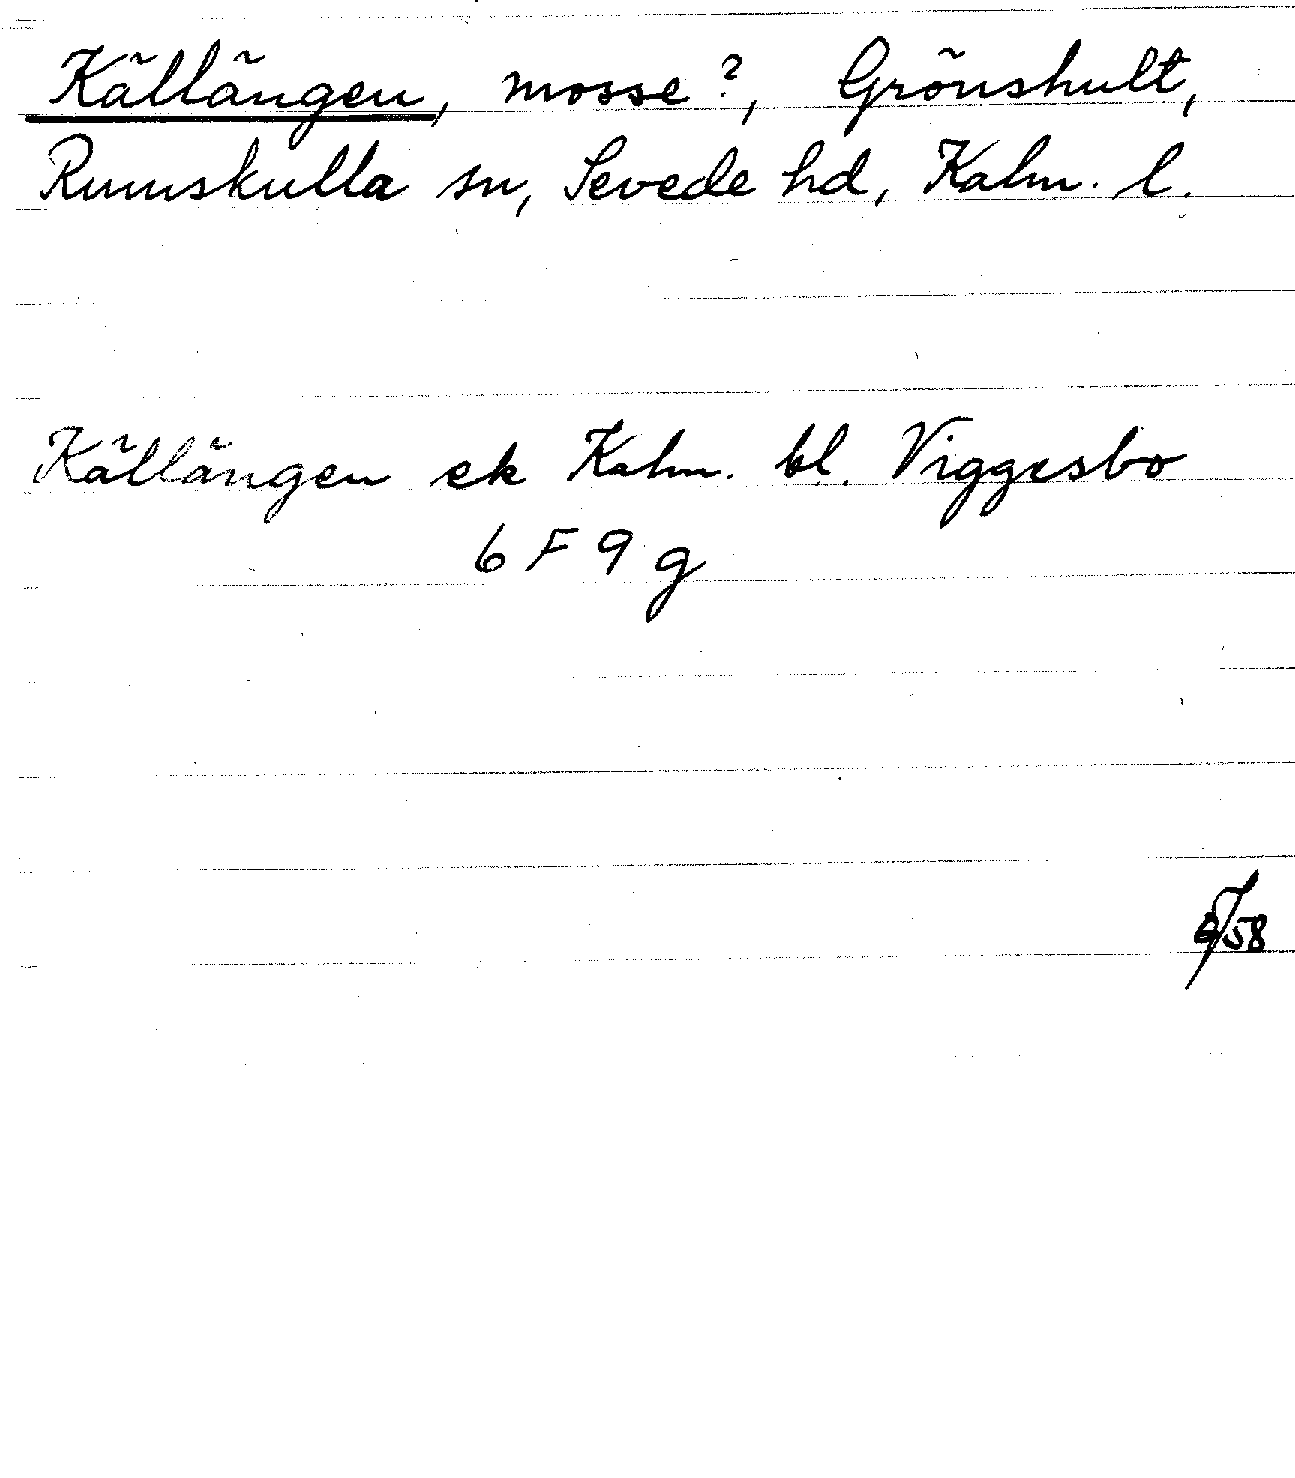 Källängen, mosse?, Grönshult,
Rumskulla sn, Sevede hd, Kalm. l.
Källängen ek Kalm. bl. Viggesbo
6 F 9 g